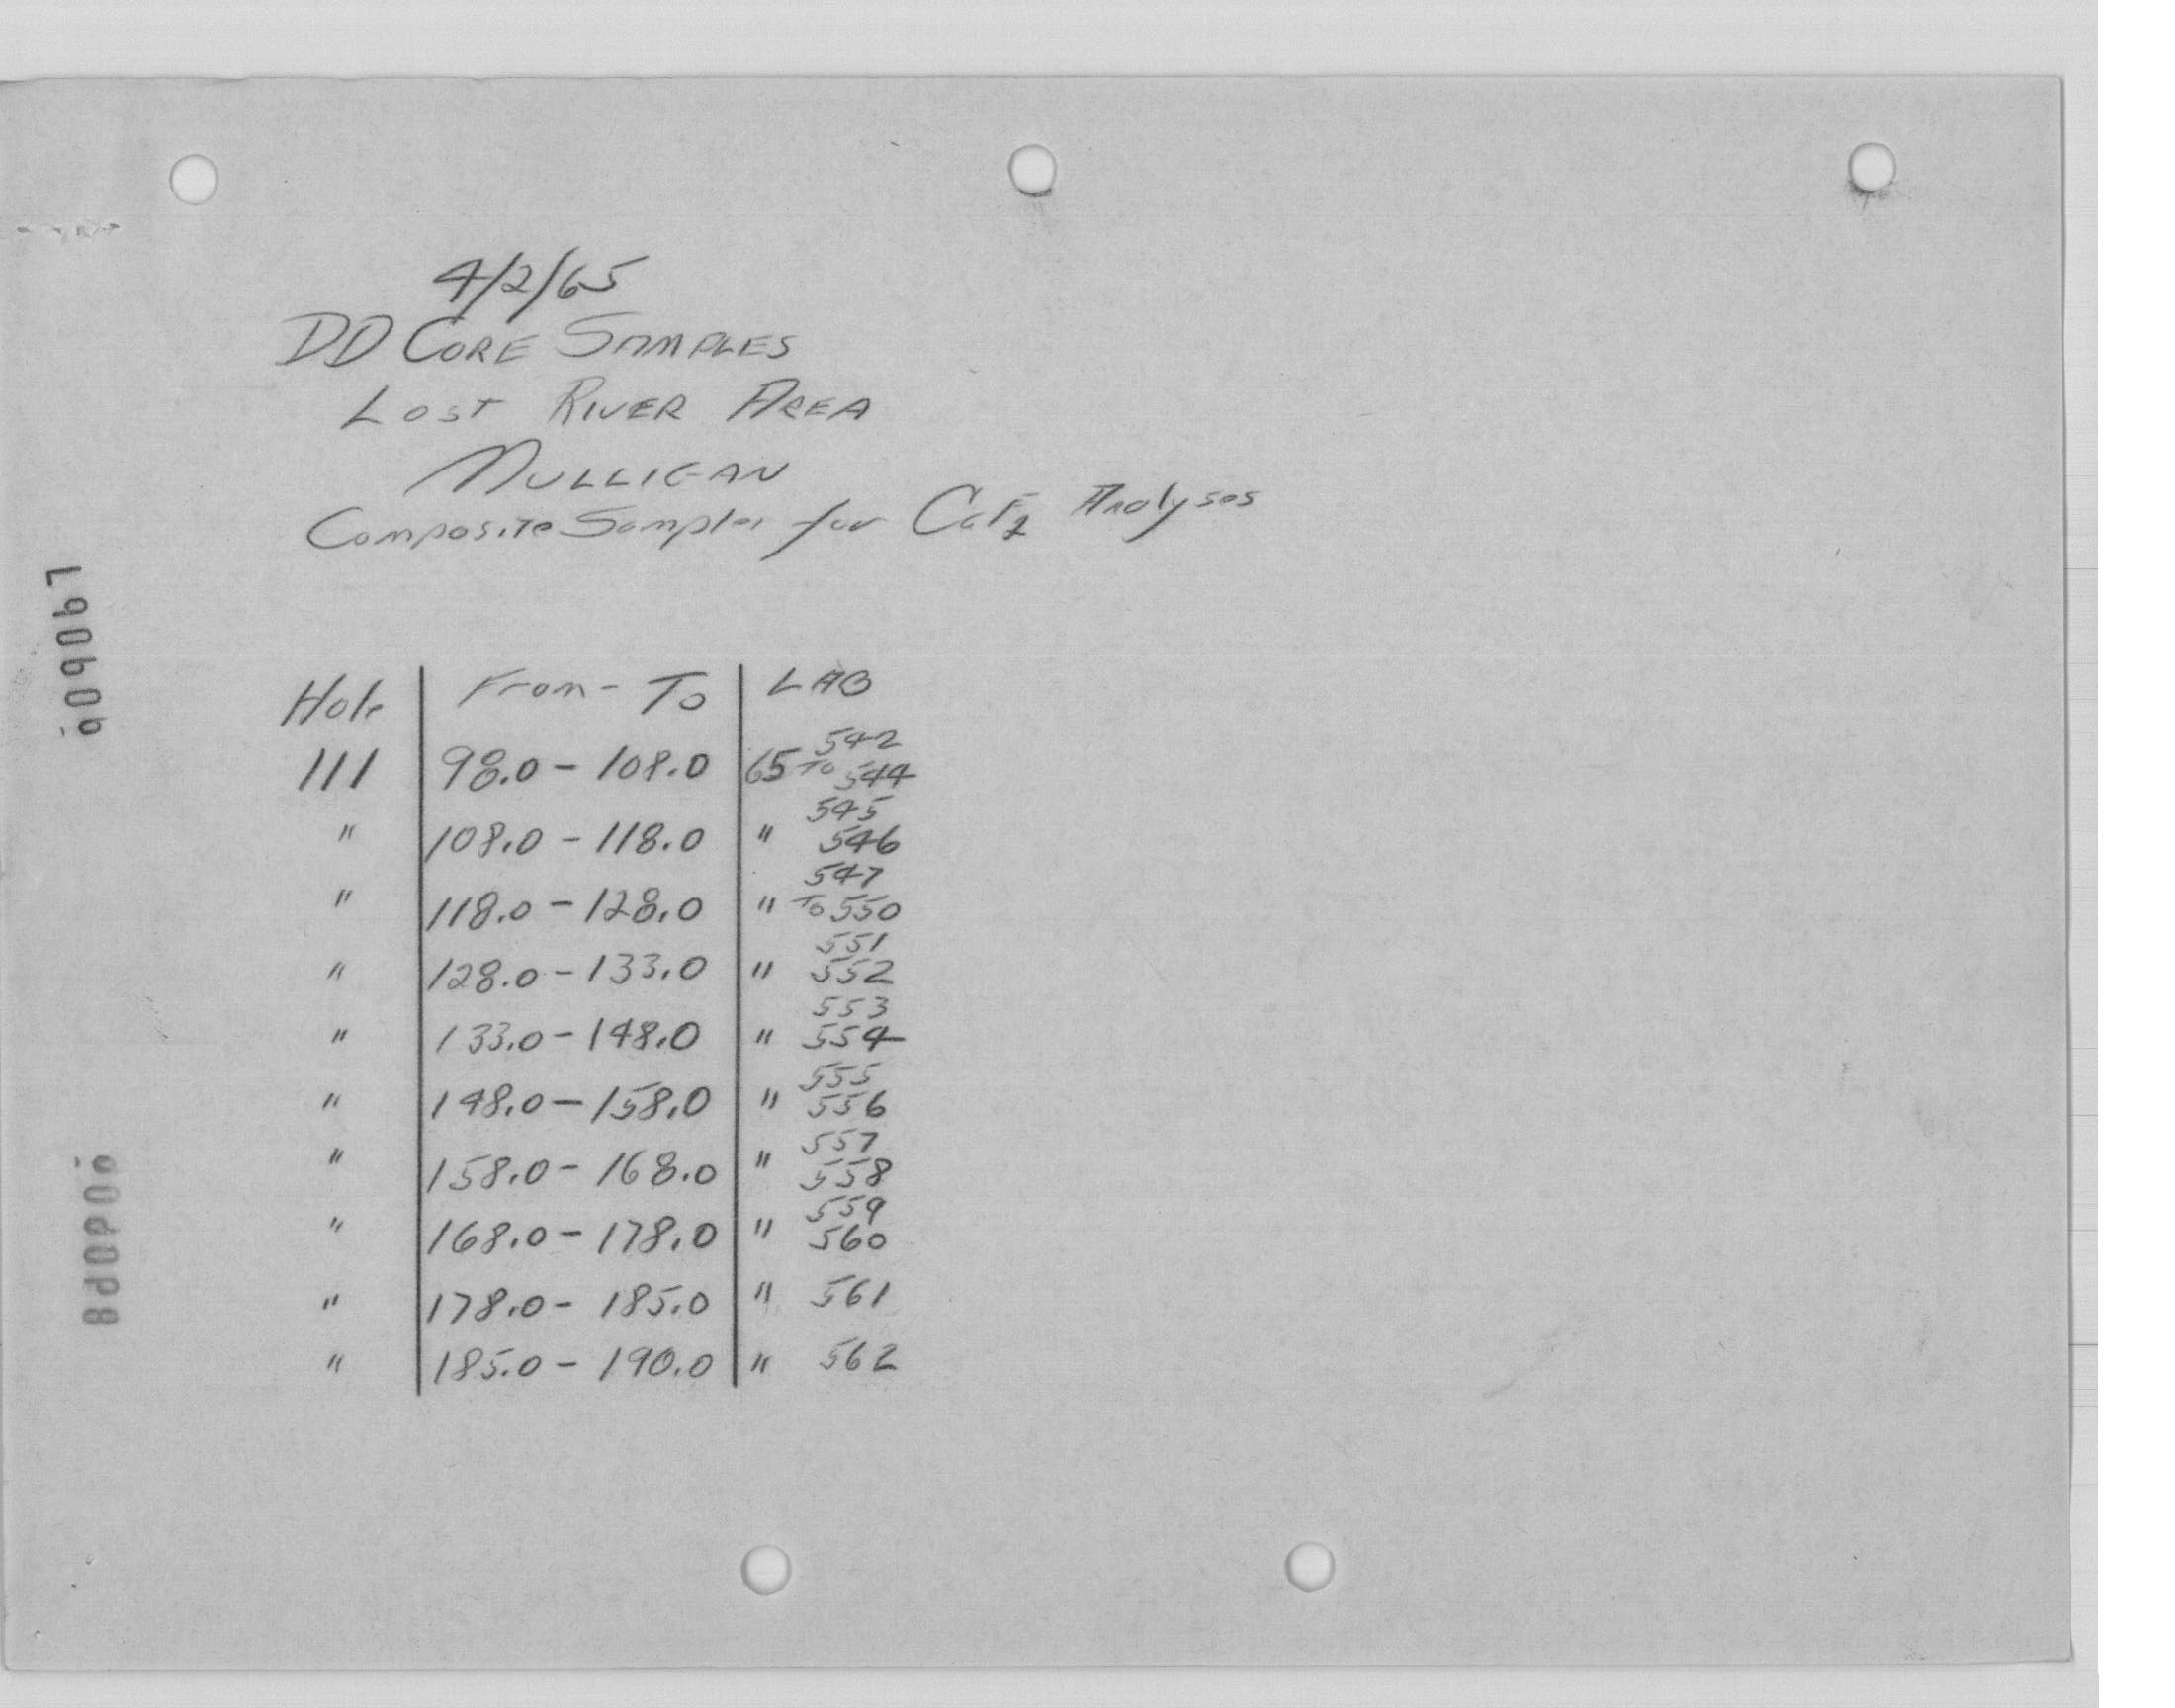 4/2/65
DD CORE SAMPLES
LOST RIVER AREA
MULLIGAN
Composite Samples for CaF2 Analyses
Hole From - To LAB
542
111 98.0 - 108.0 65 To 544
545
" 108.0 - 118.0 " 546
547
" 118.0 - 128.0 " To 550
551
" 128.0 - 133.0 " 552
553
" 133.0 - 148.0 " 554
555
" 148.0 - 158.0 " 556
557
" 158.0 - 168.0 " 558
559
" 168.0 - 178.0 " 560
" 178.0 - 185.0 " 561
" 185.0 - 190.0 " 562